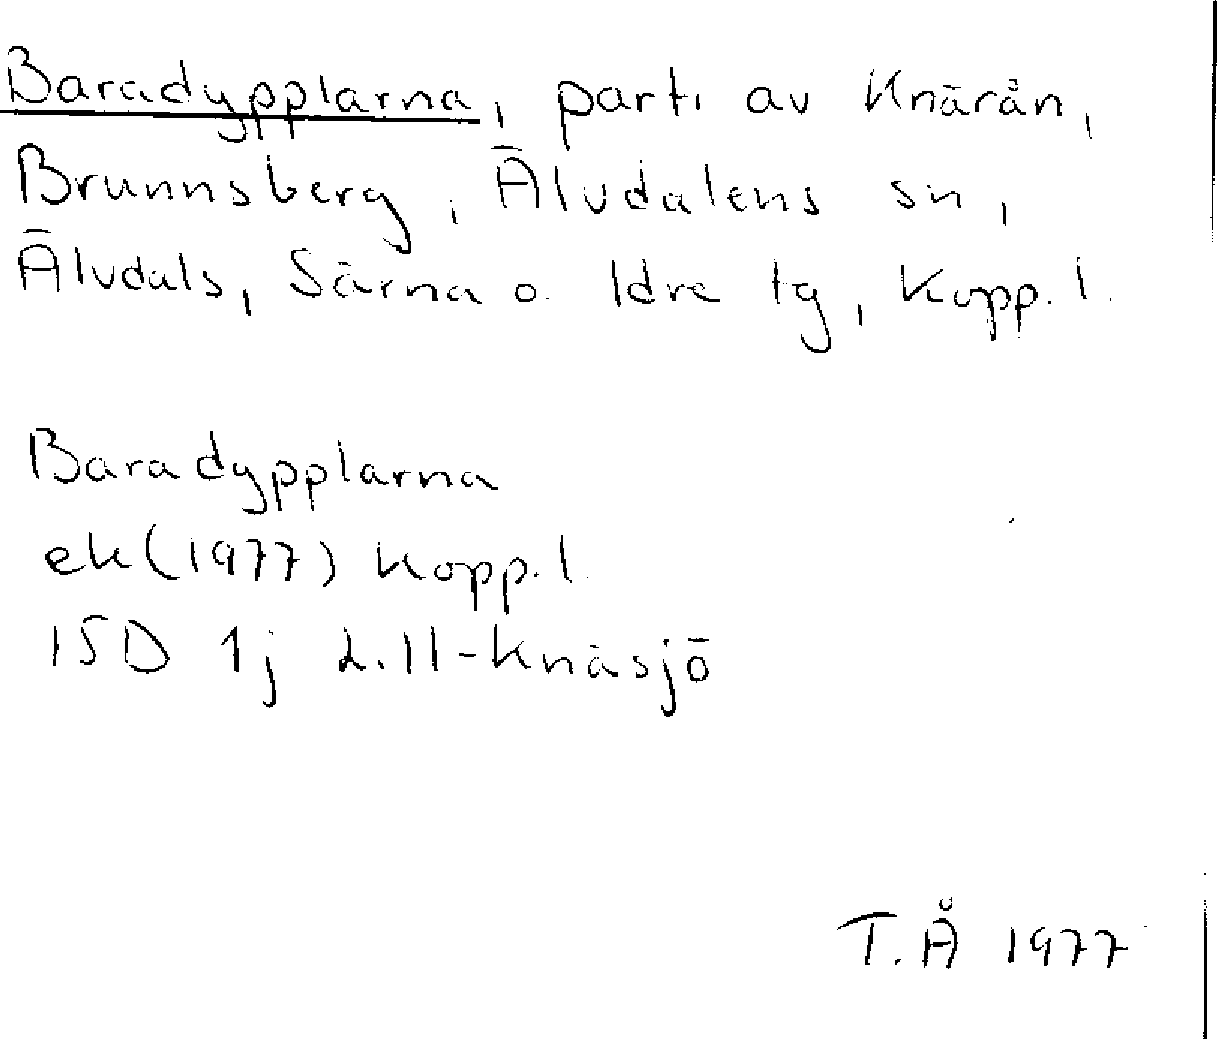 Baradypplarna, parti av Knärån,
Brunnsberg, Älvdalens sn,
Älvdals, Särna o. Idre tg, Kopp. l.
Baradypplarna
ek (1977) Kopp. l.
15D 1j L. Il-Knäsjö
T.Å 1977